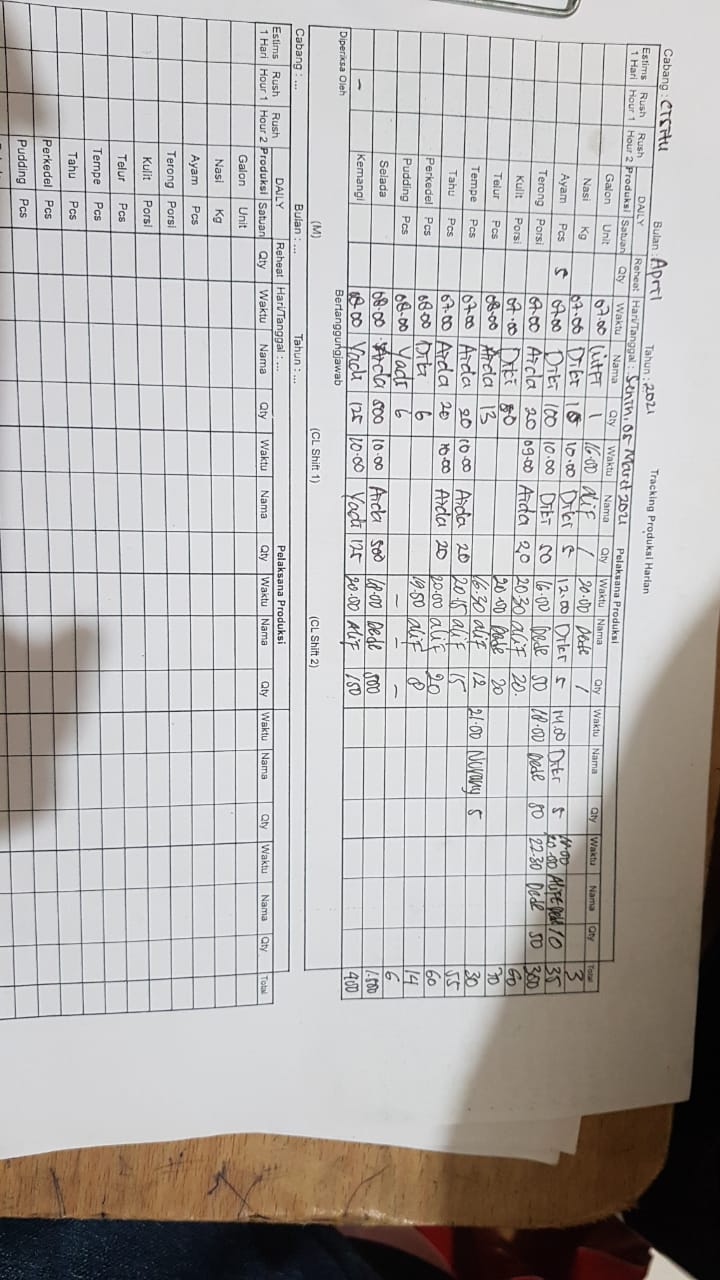 Cabang : CTSHU Bulan : April Tahun : 2021 Tracking Produksi Harian
Estims 1 Hari Rush Hour 1 Rush Hour 2 DAILY Produksi Satuan Reheat Qty Hari/Tanggal : Senin, 05 Maret 2021 Pelaksana Produksi
Waktu Nama Qty Waktu Nama Qty Waktu Nama Qty Waktu Nama Qty Waktu Nama Qty Total
Galon Unit 07.00 1 16.00 Alif 1 20.00 Dede 1 3
Nasi Kg 07.00 Dikr 10.00 Dikr 5 12.00 Dikr 5 14.00 Dikr 5 20.00 10 35
Ayam Pcs 5 07.00 Dikr 100 10.00 Dikr 50 16.00 Dede 50 18.00 Dede 50 22.30 Dede 50 300
Terong Porsi 07.00 Arda 20 09.00 Arda 20 20.30 Alif 20. 60
Kulit Porsi 07.00 Dikr 20.00 Dede 20 70
Telur Pcs 08.00 Arda 13 16.30 Alif 12 21.00 5 30
Tempe Pcs 07.00 Arda 20 10.00 Arda 20 20.15 Alif 15 55
Tahu Pcs 07.00 Arda 20 10.00 Arda 20 20.00 Alif 20 60
Perkedel Pcs 08.00 Dikr 6 19.50 Alif 8 14
Pudding Pcs 08.00 Yadi 6 - - - 6
Selada 08.00 Arda 500 10.00 Arda 500 18.00 Dede 500 1.500
Kemangi 08.00 Yadi 125 10.00 Yadi 125 20.00 Alif 150 400
Diperiksa Oleh (M) Bertanggungjawab (CL Shift 1) (CL Shift 2)
Cabang : ... Bulan : ... Tahun : ...
Estims 1 Hari Rush Hour 1 Rush Hour 2 DAILY Produksi Satuan Reheat Qty Hari/Tanggal : ... Pelaksana Produksi
Waktu Nama Qty Waktu Nama Qty Waktu Nama Qty Waktu Nama Qty Waktu Nama Qty Total
Galon Unit
Nasi Kg
Ayam Pcs
Terong Porsi
Kulit Porsi
Telur Pcs
Tempe Pcs
Tahu Pcs
Perkedel Pcs
Pudding Pcs